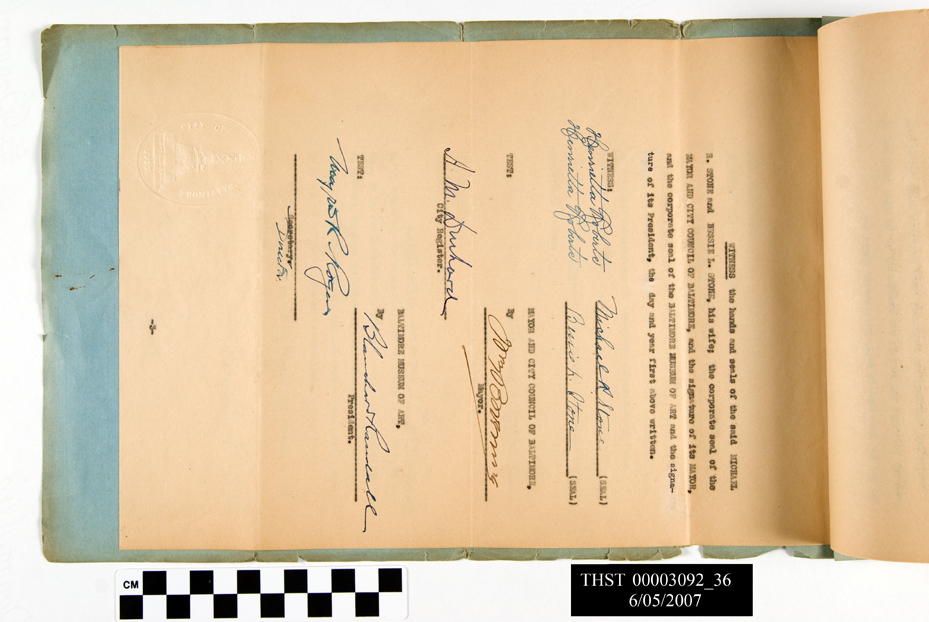 WITNESS the hands and seals of the said MICHAEL
R. STONE and BESSIE L. STONE, his wife; the corporate seal of the
MAYOR AND CITY COUNCIL OF BALTIMORE, and the signature of its MAYOR,
and the corporate seal of the BALTIMORE MUSEUM OF ART and the signa-
ture of its President, the day and year first above written.
WITNESS:
Henrietta Roberts Michael R. Stone (SEAL)
Henrietta Roberts Stone (SEAL)
TEST: MAYOR AND CITY COUNCIL OF BALTIMORE,
By
Mayor.
City Register.
TEST: BALTIMORE MUSEUM OF ART,
By Blanchard Randall
President.
Secretary.
Director.
-3-
CITY OF
CM
THST 00003092_36
6/05/2007